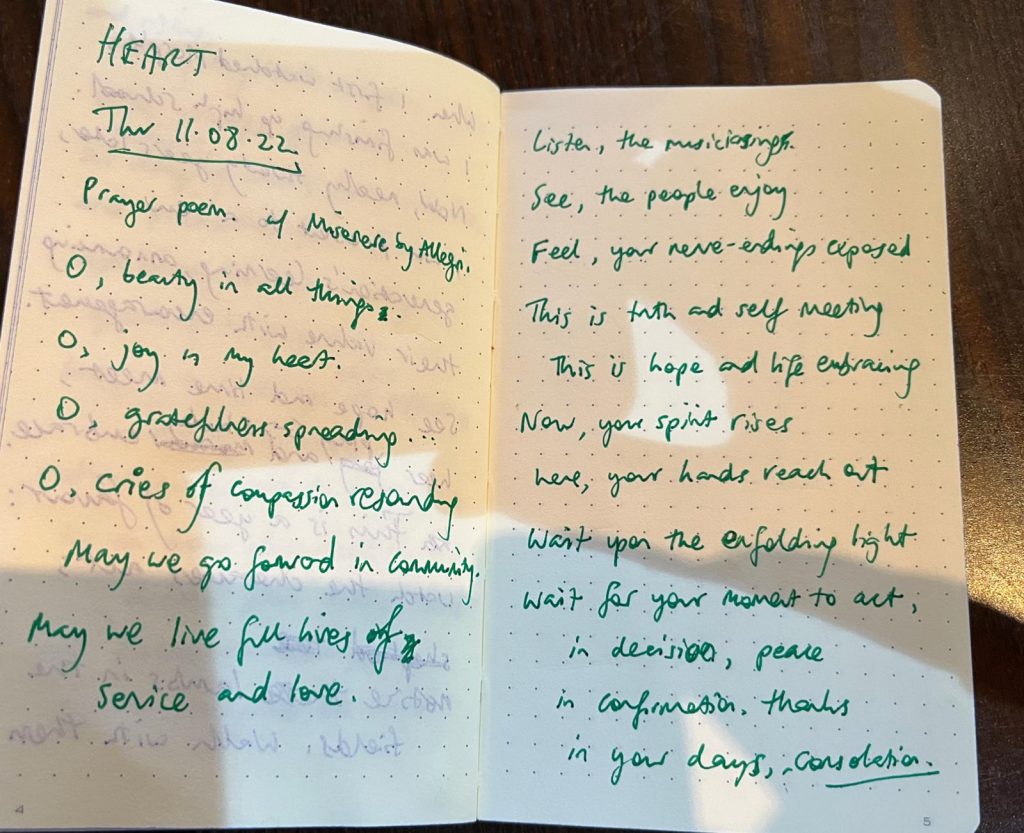 HEART
Thr 11.08.22
Prayer poem. w/ Miserere by Allegri.
O, beauty in all things.
O, joy in my heart.
O, gratefulness spreading...
O, cries of compassion resounding
May we go forward in community.
May we live full lives of
service and love.
4
Listen, the music sings.
See, the people enjoy
Feel, your nerve-endings exposed
This is truth and self meeting
This is hope and life embracing
Now, your spirit rises
here, your hands reach out
Wait upon the enfolding light
Wait for your moment to act,
in decision, peace
in confirmation, thanks
in your days, consolation.
5